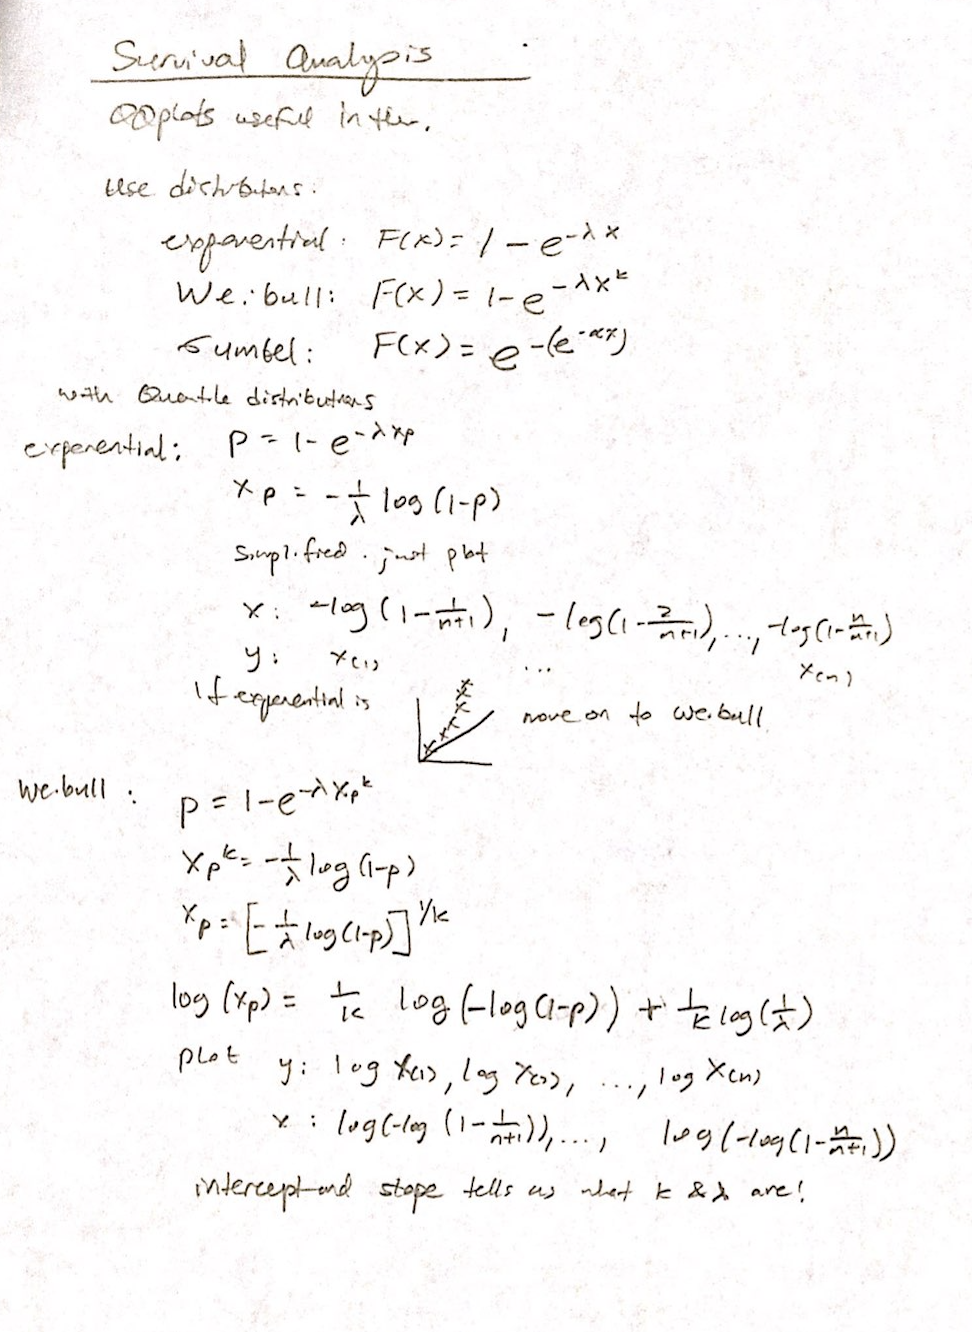 Survival Analysis
QQplots useful in this.
Use distributions:
exponential: F(x) = 1 - e^{-λx}
Weibull: F(x) = 1 - e^{-λx^k}
Gumbel: F(x) = e^{-(e^{-αx})}
with Quantile distributions
exponential: P = 1 - e^{-λx_p}
x_p = -1/λ log(1-p)
Simplified. just plot
x: -log(1 - 1/(n+1)), -log(1 - 2/(n+1)), ..., -log(1 - n/(n+1))
y: x_(1) ... x_(n)
If exponential is move on to Weibull
Weibull: p = 1 - e^{-λx_p^k}
x_p^k = -1/λ log(1-p)
x_p = [-1/λ log(1-p)]^{1/k}
log(x_p) = 1/k log(-log(1-p)) + 1/k log(1/λ)
plot y: log x_(1), log x_(2), ..., log x_(n)
x: log(-log(1 - 1/(n+1))), ..., log(-log(1 - n/(n+1)))
intercept and slope tells us what k & λ are!